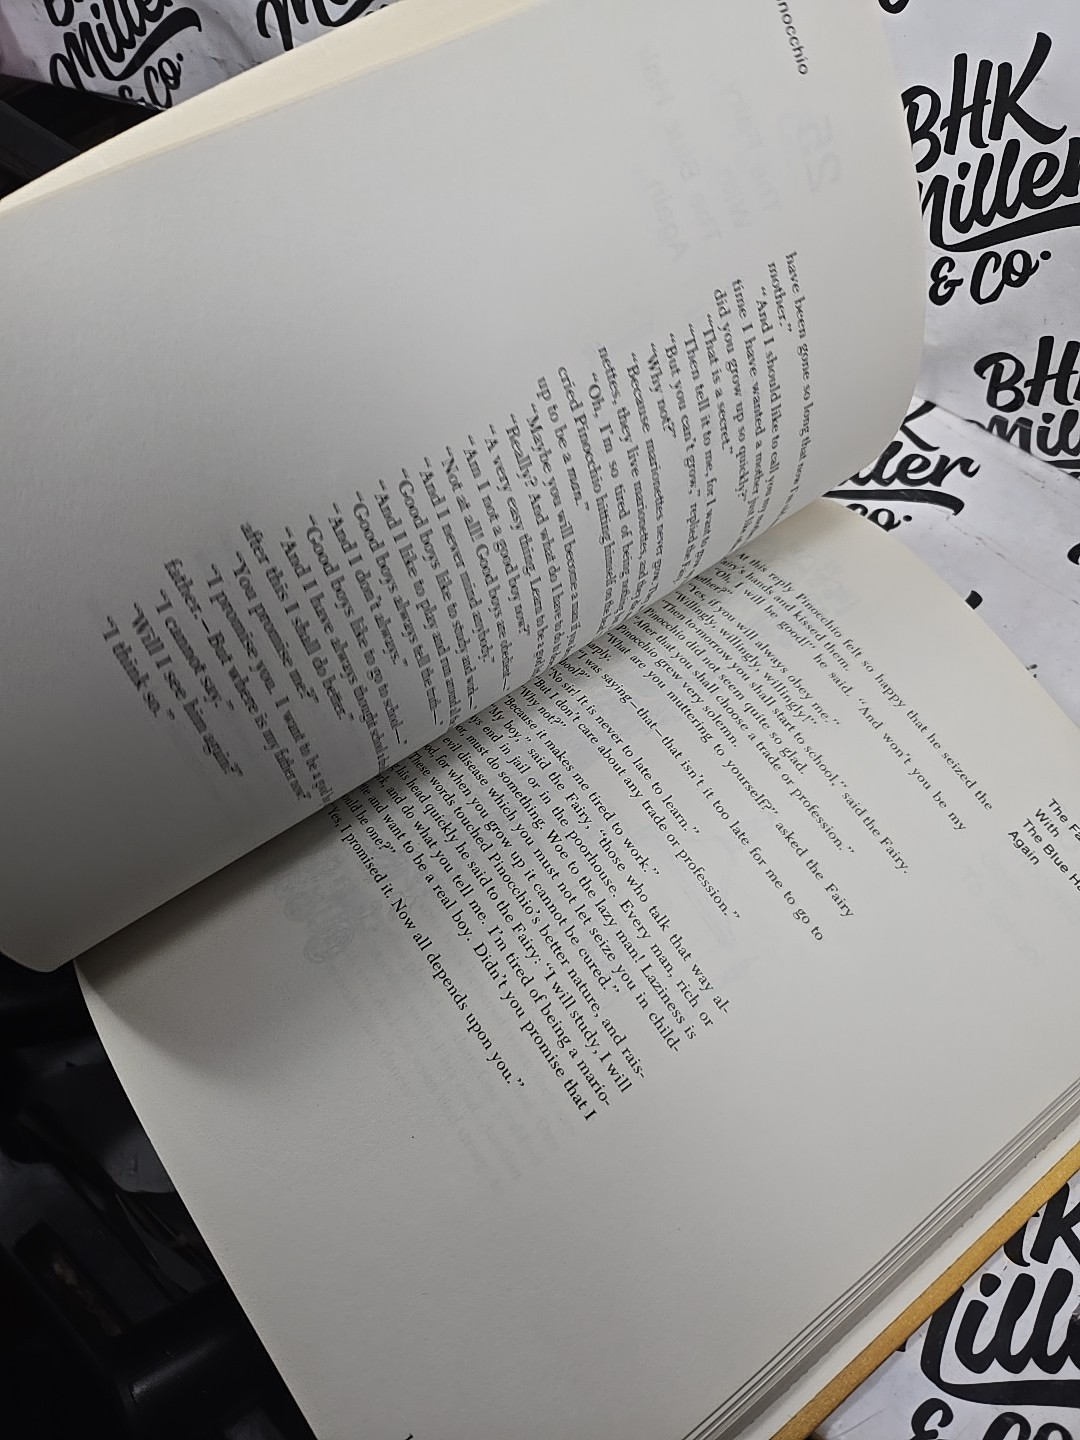 Pinocchio
have been gone so long that now I
mother."
"And I should like to call you my
time I have wanted a mother, just like
did you grow up so quickly?"
"That is a secret."
"Then tell it to me, for I want to
"But you can't grow," replied the
"Why not?"
"Because marionettes never grow.
nettes, they live marionettes, and
"Oh, I'm so tired of being
cried Pinocchio hitting himself on the
up to be a man."
"Maybe you will become a man if you
"Really? And what do I have to do?"
"A very easy thing. Learn to be a good
"Am I not a good boy now?"
"Not at all! Good boys are obedient—"
"And I never mind anybody."
"Good boys like to study and work—"
"And I like to play and run around."
"Good boys always tell the truth—"
"And I don't always."
"Good boys like to go to school—"
"And I have always thought school
after this I shall do better."
"You promise me?"
"I promise you. I want to be a good
father.—But where is my father now?"
"I cannot say."
"Will I see him again?"
"I think so."
The
With
The Blue
Again
At this reply Pinocchio felt so happy that he seized the
Fairy's hands and kissed them.
"Oh, I will be good!" he said. "And won't you be my
mother?"
"Yes, if you will always obey me."
"Willingly, willingly, willingly!"
"Then to-morrow you shall start to school," said the Fairy.
Pinocchio did not seem quite so glad.
"After that you shall choose a trade or profession."
Pinocchio grew very solemn.
"What are you muttering to yourself?" asked the Fairy
sharply.
"I was saying—that—that isn't it too late for me to go to
school?"
"No sir! It is never to late to learn."
"But I don't care about any trade or profession."
"Why not?"
"Because it makes me tired to work."
"My boy," said the Fairy, "those who talk that way al-
ways end in jail or in the poorhouse. Every man, rich or
poor, must do something. Woe to the lazy man! Laziness is
evil disease which you must not let seize you in child-
hood, for when you grow up it cannot be cured."
These words touched Pinocchio's better nature, and rais-
his head quickly he said to the Fairy: "I will study, I will
work, and do what you tell me. I'm tired of being a mario-
and want to be a real boy. Didn't you promise that I
could be one?"
"Yes, I promised it. Now all depends upon you."
BHK
Miller
& Co.
BHK
Miller
& Co.